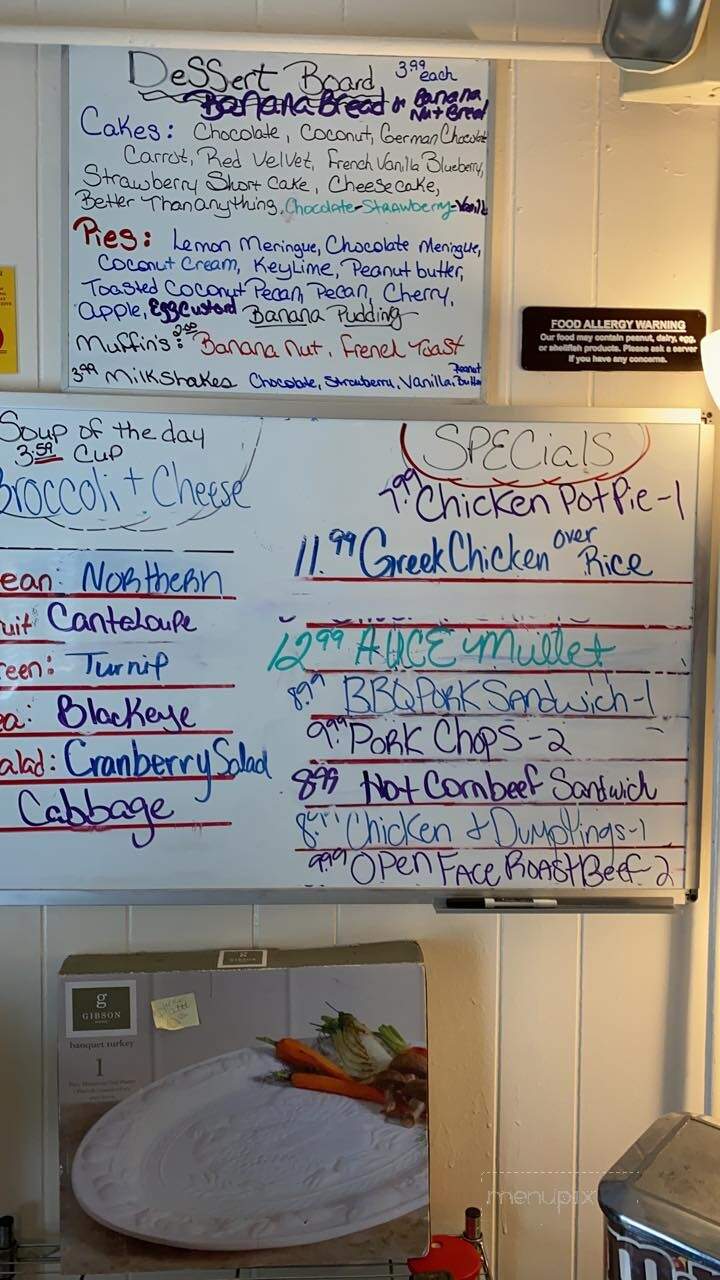 Dessert Board 3.99 each
Banana Bread or Banana Nut Bread
Cakes: Chocolate, Coconut, German Chocolate
Carrot, Red Velvet, French Vanilla Blueberry,
Strawberry Short Cake, Cheesecake,
Better Than Anything, Chocolate-Strawberry-Vanill
Pies: Lemon Meringue, Chocolate Meringue,
Coconut Cream, Key Lime, Peanut butter,
Toasted Coconut Pecan, Pecan, Cherry,
Apple, Egg Custard Banana Pudding
Muffin's: 2.00 Banana Nut, French Toast
3.99 Milkshakes Chocolate, Strawberry, Vanilla, Peanut Butter
FOOD ALLERGY WARNING
Our food may contain peanut, dairy, egg,
or shellfish products. Please ask a server
if you have any concerns.
Soup of the day
3.59 Cup
Broccoli + Cheese
ean: Northern
uit: Cantaloupe
reen: Turnip
ea: Blackeye
alad: Cranberry Salad
Cabbage
SPECIALS
7.99 Chicken Pot Pie-1
11.99 Greek Chicken over Rice
12.99 AUCE Mullet
8.99 BBQ Pork Sandwich-1
9.99 Pork Chops-2
8.99 Hot Cornbeef Sandwich
Chicken & Dumplings-1
9.99 Open Face Roast Beef-2
g
GIBSON
banquet turkey
1
menupix